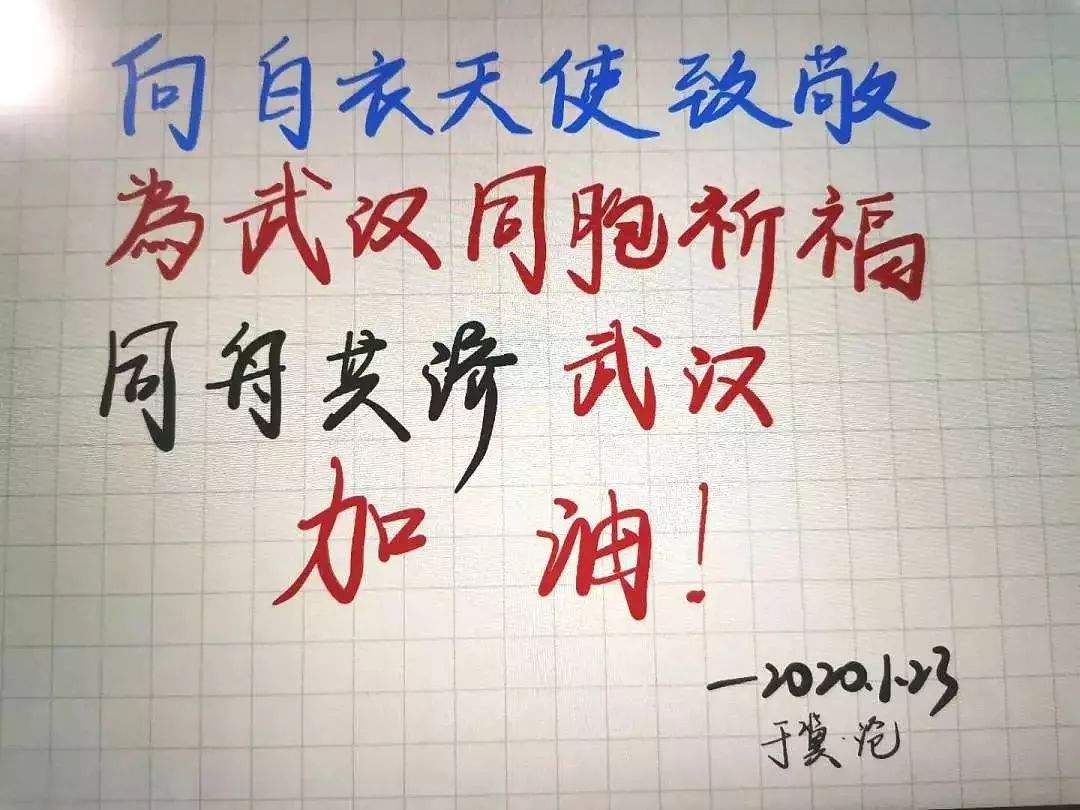 向白衣天使致敬
為武汉同胞祈福
同舟共济 武汉
加油！
—2020.1.23
于冀·沧